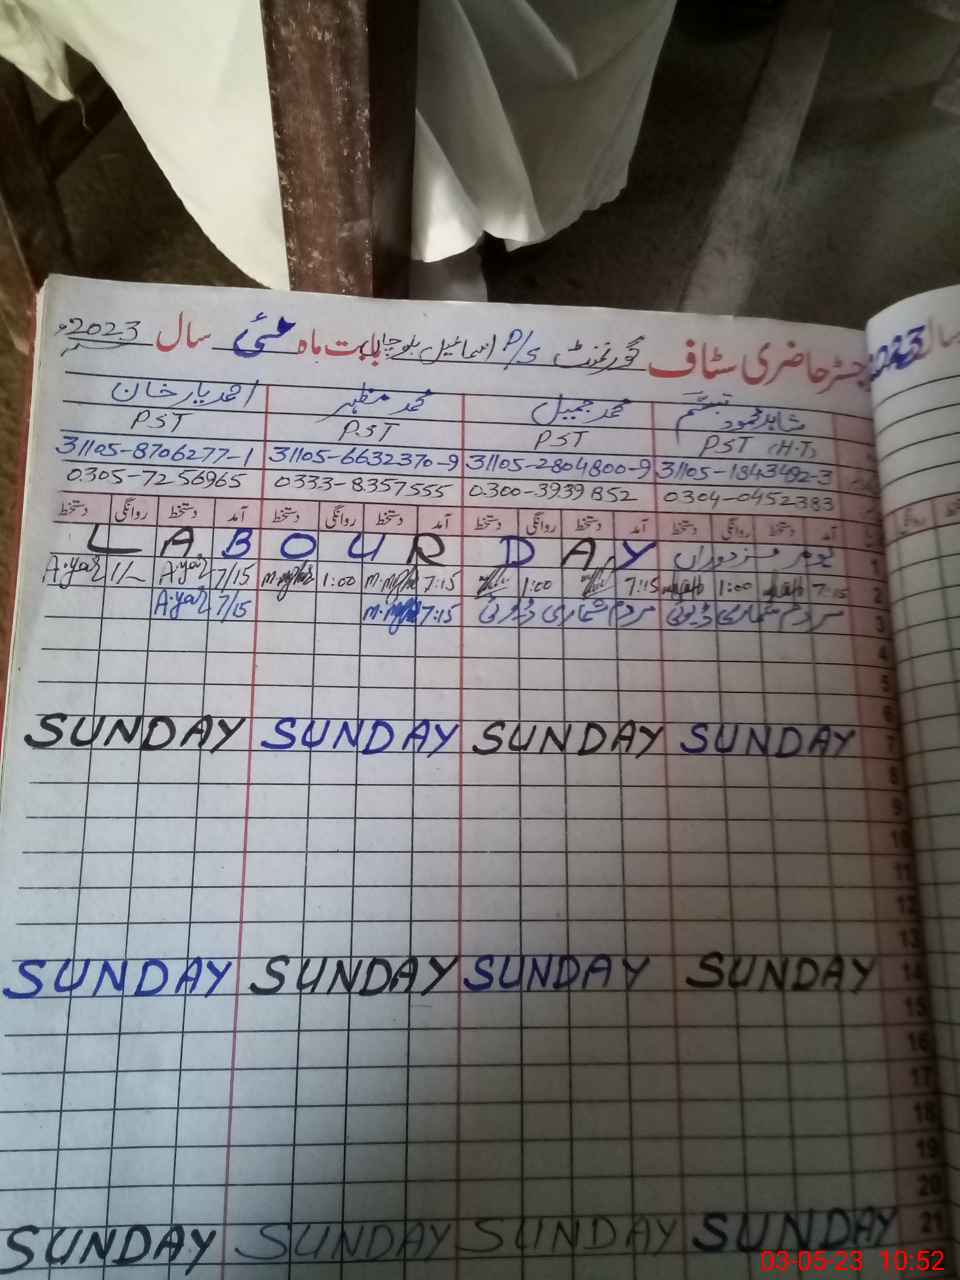 رجسٹر حاضری سٹاف گورنمنٹ P/S اسماعیل بلوچاں بابت ماہ مئی سال 2023ء
شاہد محمود تبسم محمد جمیل محمد مظہر احمد یار خان
PST (H.T) PST PST PST
31105-1843492-3 31105-2804800-9 31105-6632370-9 31105-8706277-1
0304-0452383 0300-3939852 0333-8357555 0305-7256965
آمد دستخط روانگی دستخط آمد دستخط روانگی دستخط آمد دستخط روانگی دستخط آمد دستخط روانگی دستخط
1 یوم مزدوراں LABOUR DAY
2 7:15 1:00 7:15 1:00 7:15 1:00 7/15 A.yar 1/- A.yar
3 مردم شماری ڈیوٹی مردم شماری ڈیوٹی 7:15 7/15 A.yar
4
5
6
7 SUNDAY SUNDAY SUNDAY SUNDAY
8
9
10
11
12
13
14 SUNDAY SUNDAY SUNDAY SUNDAY
15
16
17
18
19
20
21 SUNDAY SUNDAY SUNDAY SUNDAY
سال 2023
روانگی
03-05-23 10:52